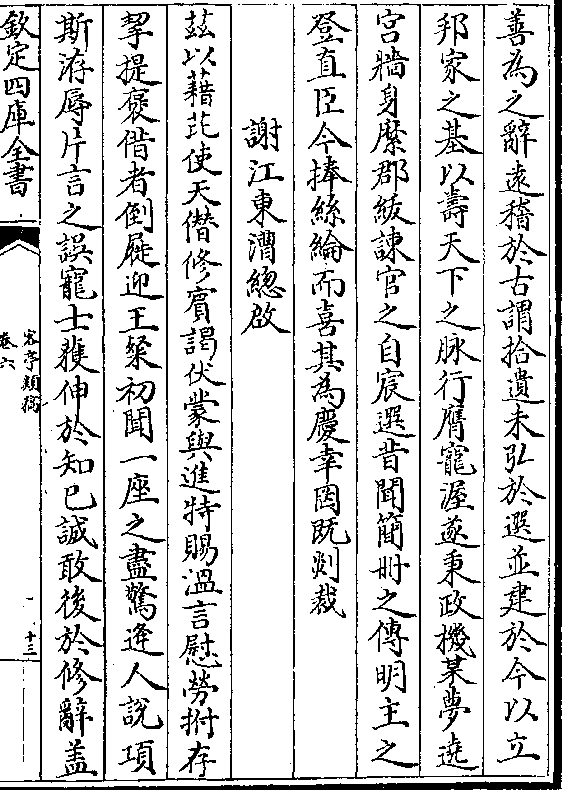 善為之辭遠稽於古謂拾遺未弘於選並建於今以立
邦家之基以壽天下之脉行膺寵渥遂秉政機某夢遶
宮牆身縻郡紱諫官之自宸選昔聞簡冊之傳明主之
登直臣今捧絲綸而喜其為慶幸罔既剡裁
謝江東漕總啟
茲以藉芘使天僣修賓謁伏蒙與進特賜溫言慰勞拊存
挈提褒借者倒屣迎王粲初聞一座之盡驚逢人說項
斯洊辱片言之誤寵士雖伸於知已誠敢後於修辭盖
欽定四庫全書
客亭類稿
卷六
十三